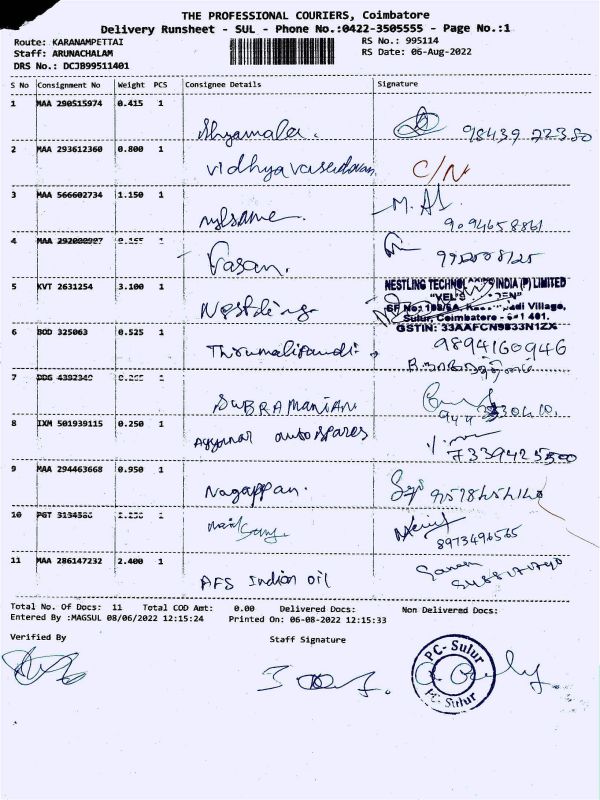 THE PROFESSIONAL COURIERS, Coimbatore
Delivery Runsheet - SUL - Phone No.:0422-3505555 - Page No.:1
Route: KARANAMPETTAI
RS No.: 995114
Staff: ARUNACHALAM
RS Date: 06-Aug-2022
DRS No.: DCJB99511401
S No Consignment No Weight PCS Consignee Details Signature
1 MAA 290515974 0.415 1
Shyamala. 98439 22380
2 MAA 293612360 0.800 1
vidhyavasudevan C/N
3 MAA 566602734 1.150 1
M. Al
9094658861
4 MAA 1
Vasan.
5 KVT 2631254 3.100 1
NESTLING INDIA (P) LIMITED
Village,
Sulur, Coimbatore - 641 401.
GSTIN: 33AAFCN9833N1ZX
Nestling
6 BOD 325063 0.525 1
9894160946
Thirumalipandi
7 DDG 4392340 1
SUBRAMANIAN
8 IXM 501939115 0.250 1
Ayyanar autospares
7339425500
9 MAA 294463668 0.950 1
Nagappan.
10 PGT 1
8973496565
11 MAA 286147232 2.400 1
AFS Indian oil
Total No. Of Docs: 11 Total COD Amt: 0.00 Delivered Docs: Non Delivered Docs:
Entered By :MAGSUL 08/06/2022 12:15:24 Printed On: 06-08-2022 12:15:33
Verified By Staff Signature
PC- Sulur
PC- Sulur